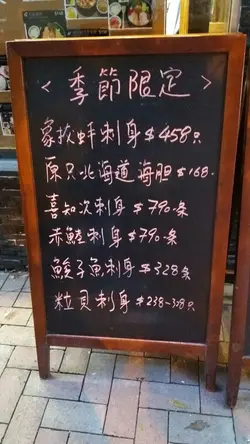 <季節限定>
象拔蚌刺身$458只
原只北海道海胆$168.
喜知次刺身$790条
赤鯥刺身$790.条
鮻子魚刺身$328条
粒貝刺身$238-318只